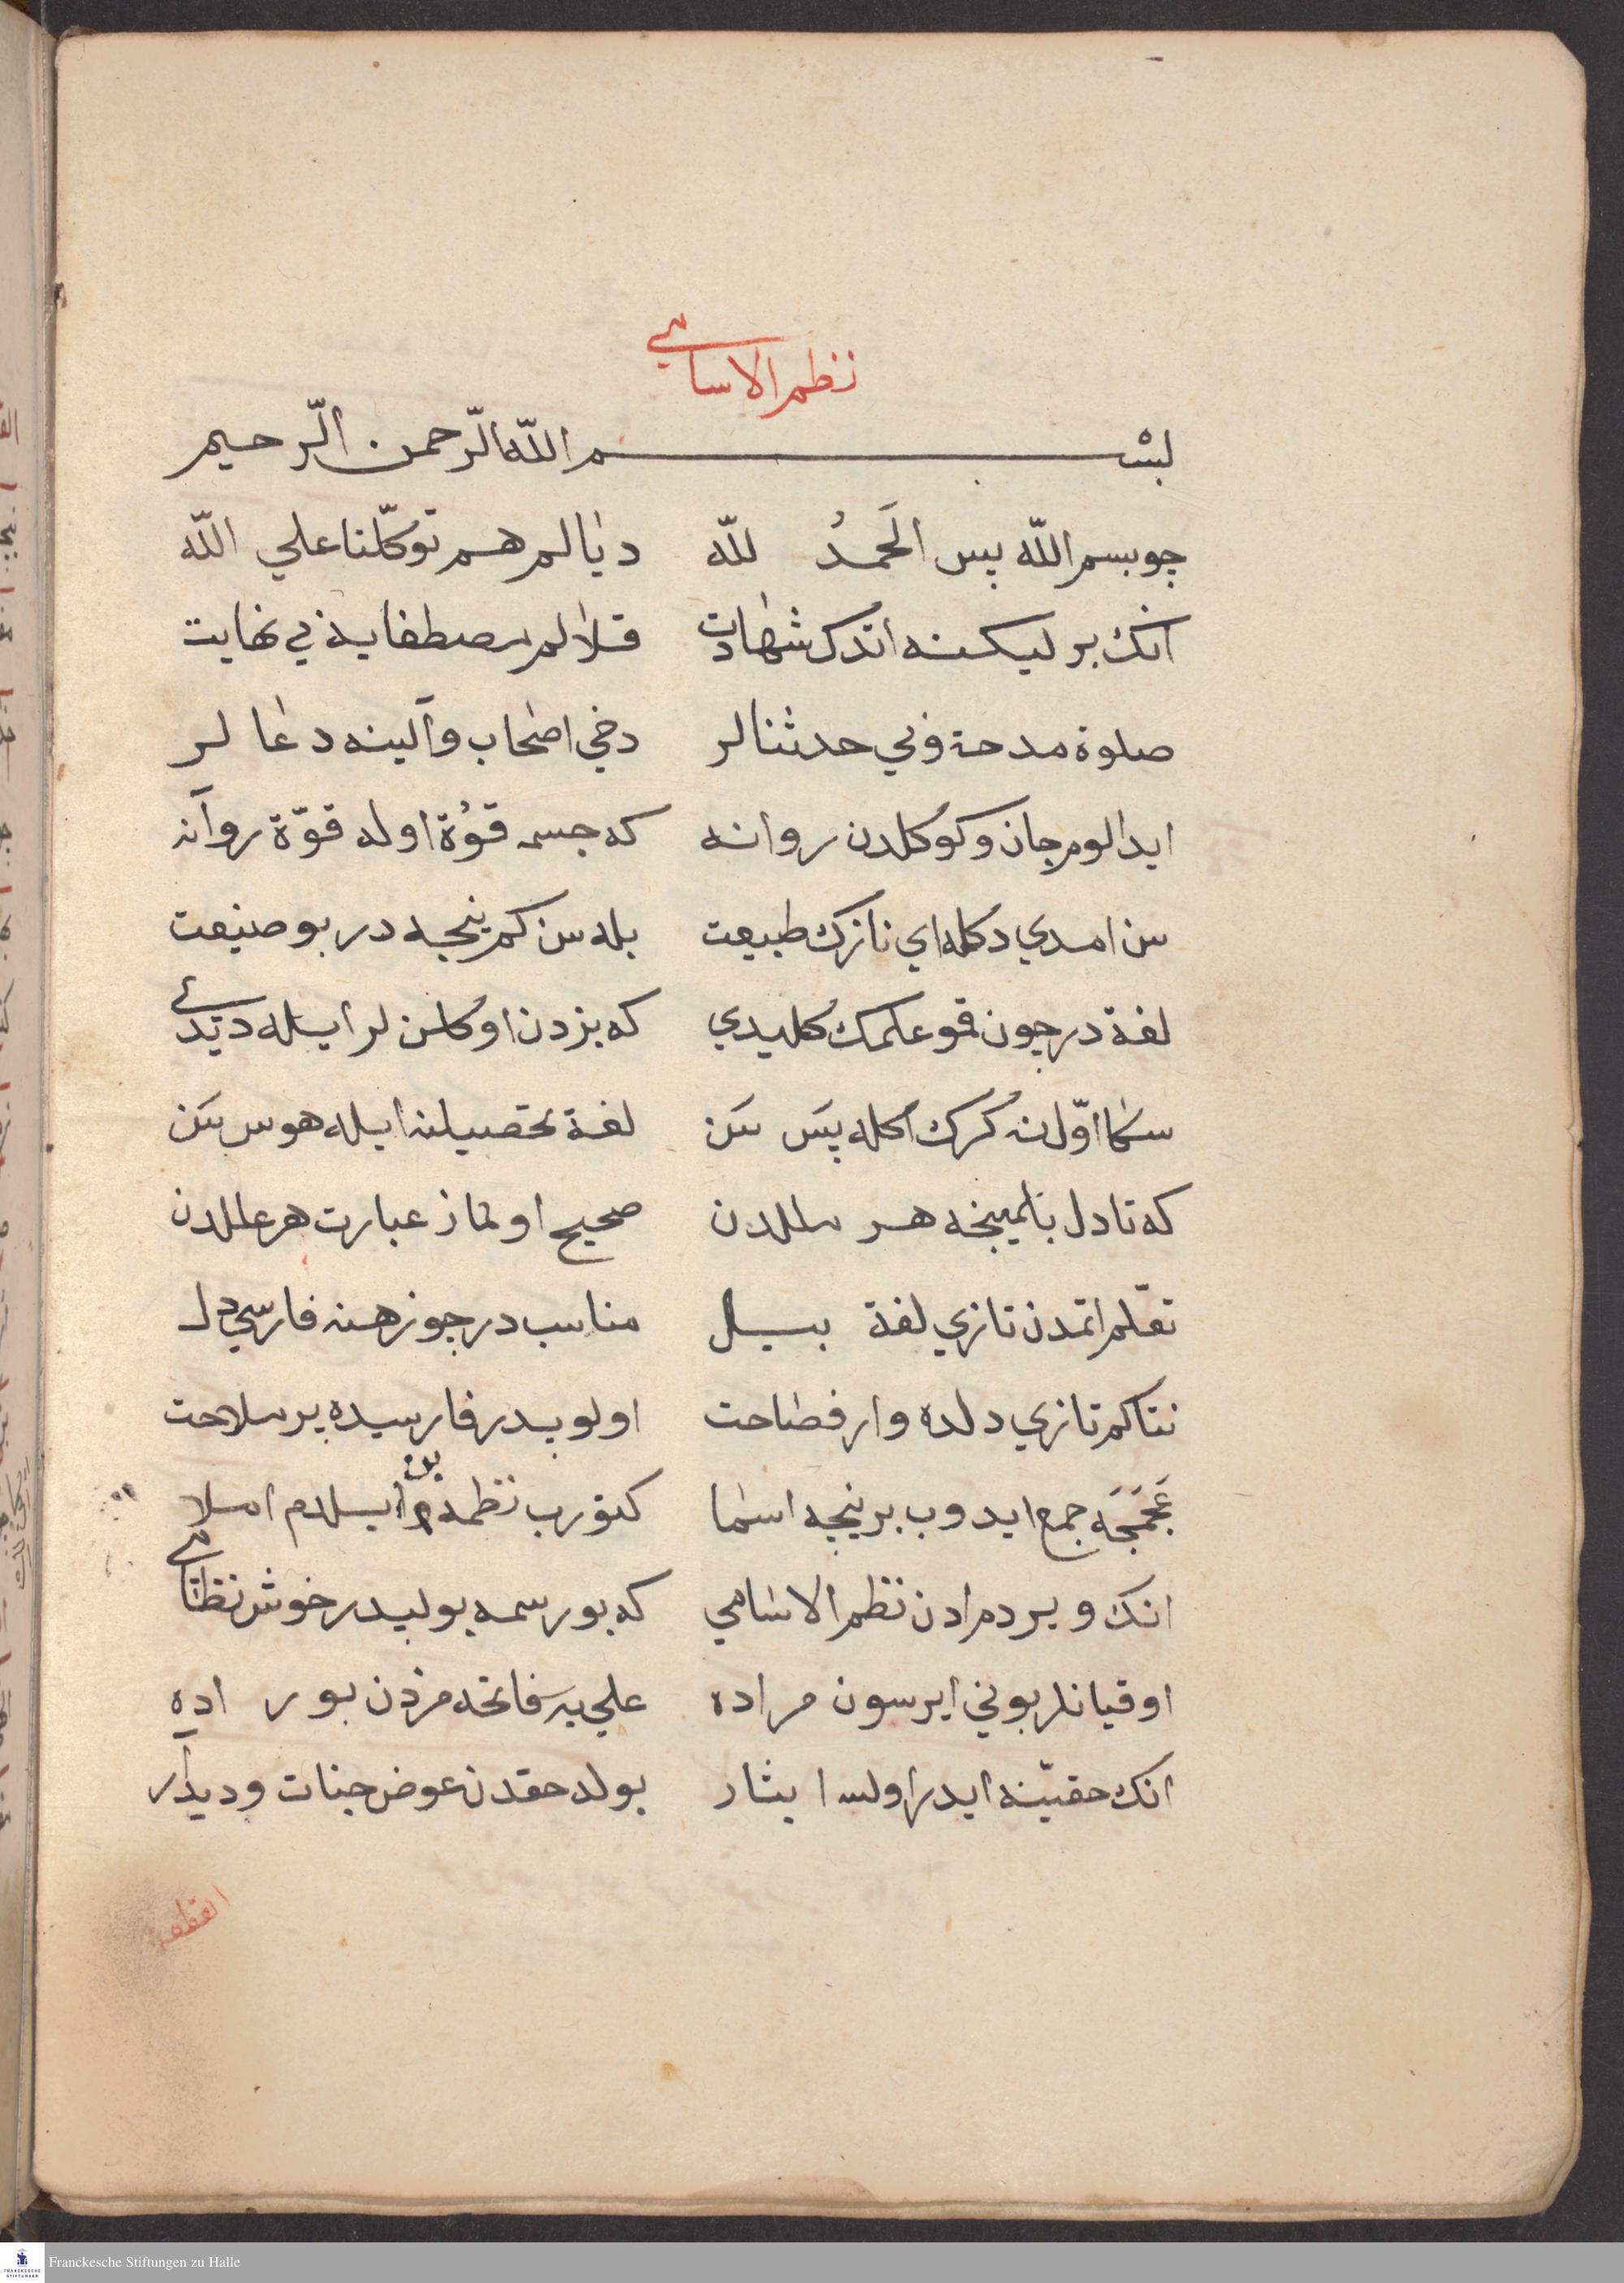 نظم الاسامي
بسم الله الرّحمن الرّحيم
چو بسم الله پس الَحمدُ لله ديالم هم توكّلنا علي الله
انك برليكنه اندك شهادت قلالم مصطفايه ني نهايت
صلوة مدحة وبي حد ثنالر دخي اصحاب وآلينه دعا لر
ايدالوم جان وكوكلدن روانه كه جسمه قوُة اوله قوّة روانه
سن امدي دكله اي نازك طبيعت بله سن كم نيجه در بو صنيعت
لغة در چون قمو علمك كليدي كه بزدن اوكلن لر ايله ديدي
سكا اوّل نه كرك اكله پسَ سَن لغة تحصيلنه ايله هوس سَن
كه تا دل باغمينجه هر مللدن صحيح اولماز عبارت هر عللدن
تعّلم اتمدن تازي لغة بيل مناسب در چوزهنه فارسي دل
نتاكم تازي دلده وار فصاحت اولوبدر فارسيده بر ملاحت
عَجَمَجَه جمع ايدوب بر نيجه اسما كتورب نظمه بن ايلدم املا
انك ويردم ادن نظم الاسامي كه بو رسمه بوليدر خوش نظامي
اوقيانلر بوني ايرسون مراده علي بر فاتحه مزدن بو ر اده
انك حقيّنه ايدر اولسا ايثار بولد حقدن عوض جنات وديدار
القطعه
Franckesche Stiftungen zu Halle